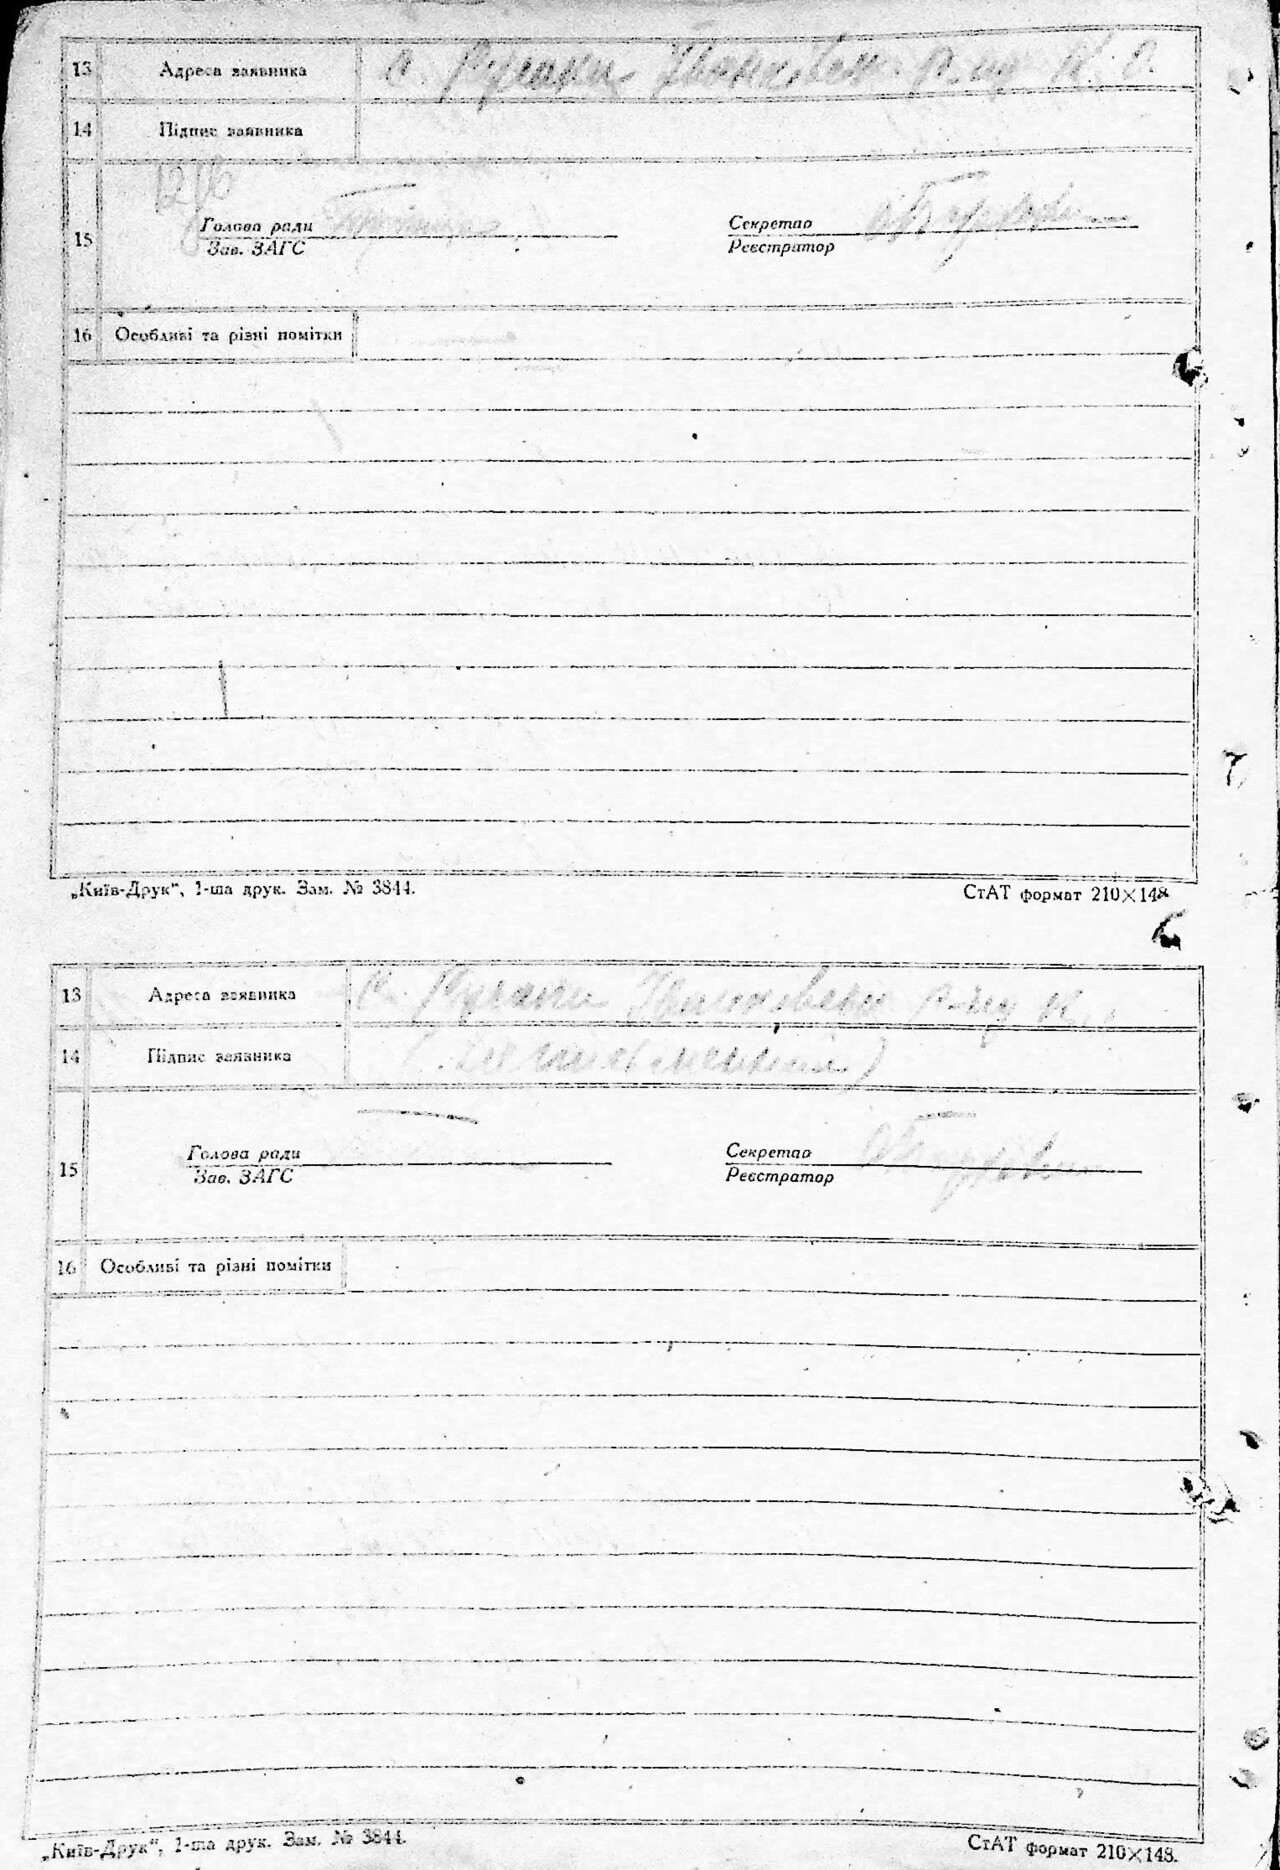 13 Адреса заявника с. Русаки Іванковськ. р-ну К. О.
14 Підпис заявника
Голова ради Секретар
15
Зав. ЗАГС Реєстратор
16 Особливі та різні помітки
„Київ-Друк“, 1-ша друк. Зам. № 3844. СтАТ формат 210×148
13 Адреса заявника с. Русаки Іванковськ р-ну К.
14 Підпис заявника
Голова ради Секретар
15
Зав. ЗАГС Реєстратор
16 Особливі та різні помітки
„Київ-Друк“, 1-ша друк. Зам. № 3844. СтАТ формат 210×148.